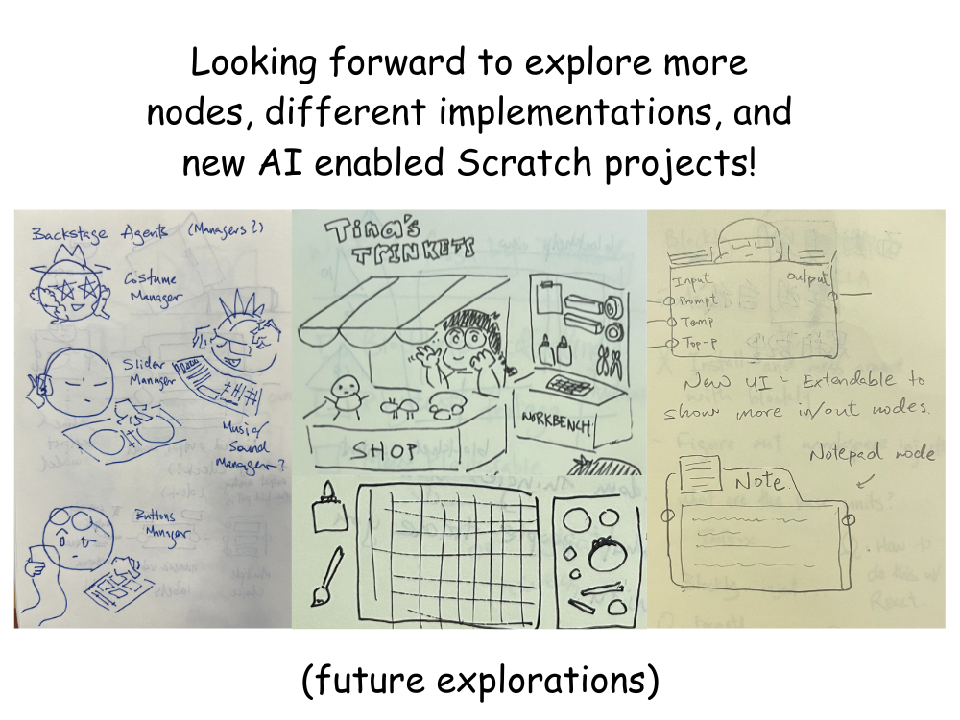 Looking forward to explore more
nodes, different implementations, and
new AI enabled Scratch projects!
Backstage Agents (Managers?)
Costume
Manager
Slider
Manager
Music/
Sound
Manager?
Buttons
Manager
Tina's
TRINKETS
SHOP
WORKBENCH
Input Output
Prompt
Temp
Top-P
New UI - Extendable to
show more in/out nodes.
Notepad node
Note
(future explorations)